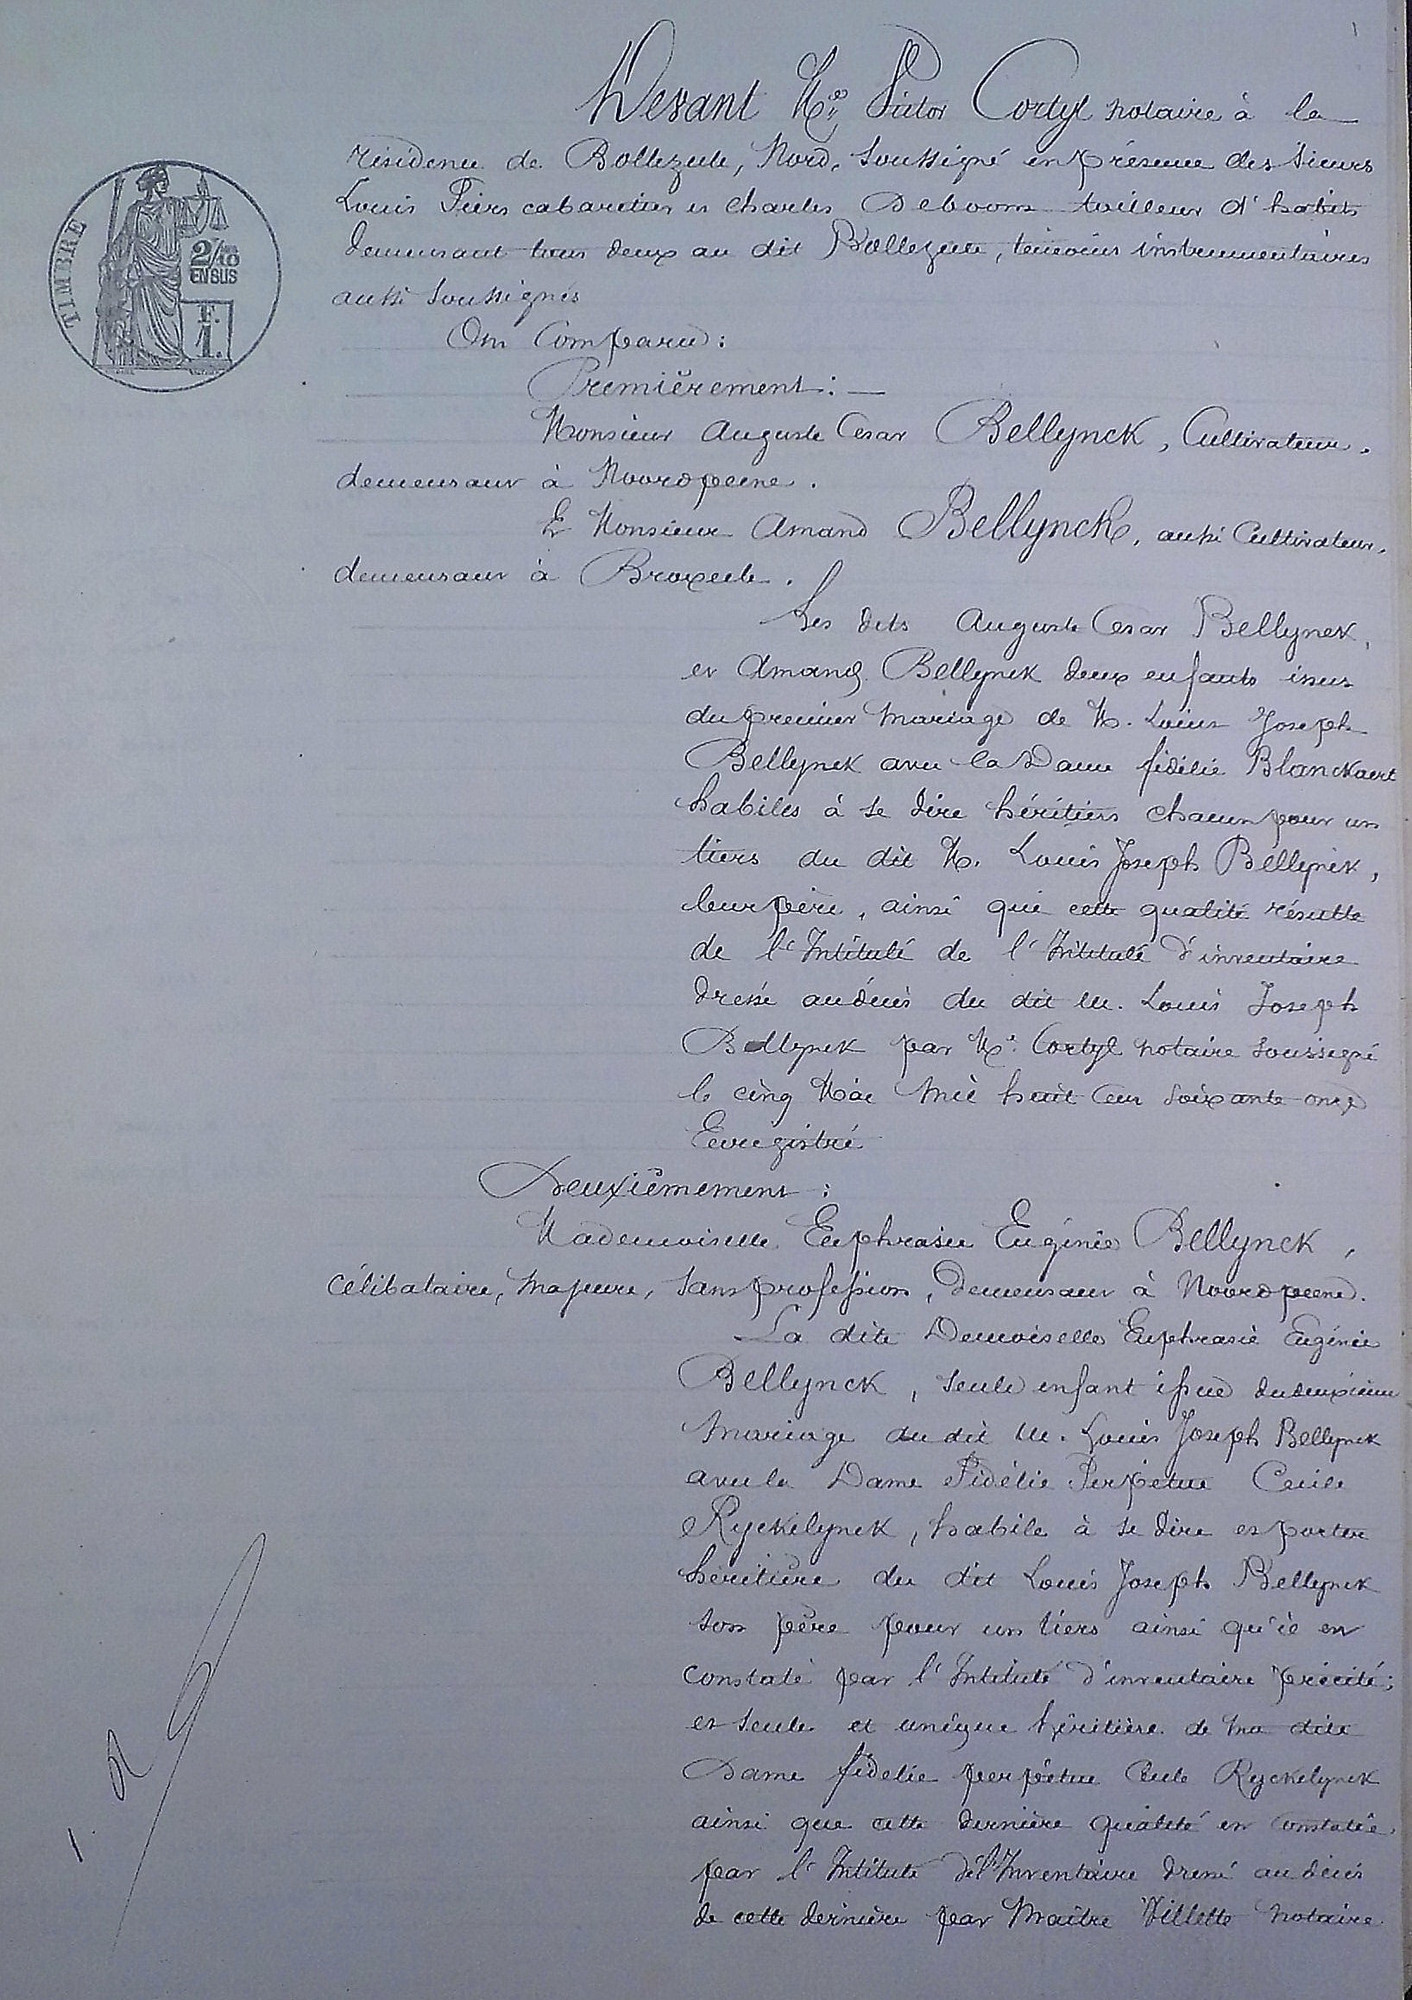 1
Devant Me Victor Cortyl notaire à la
résidence de Bollezeele, Nord, soussigné en présence des sieurs
Louis Fiers cabaretier et Charles Deboom tailleur d'habits
demeurant tous deux au dit Bollezeele, témoins instrumentaires
aussi soussignés
TIMBRE
2/10
EN SUS
F.
1.
Ont Comparu :
Premièrement : —
Monsieur Auguste Cesar Bellynck, Cultivateur,
demeurant à Noordpeene.
Et Monsieur Amand Bellynck, aussi Cultivateur,
demeurant à Broxeele.
Les dits Auguste Cesar Bellynck,
et Amand Bellynck deux enfants issus
du premier mariage de M. Louis Joseph
Bellynck avec la Dame fidélie Blanckaert
habiles à se dire héritiers chacun pour un
tiers du dit M. Louis Joseph Bellynck,
leur père, ainsi que cette qualité résulte
de l'Intitulé de l'Intitulé d'inventaire
dressé au décès du dit M. Louis Joseph
Bellynck par Me Cortyl notaire soussigné
le cinq Mai mil huit cent soixante onze
Enregistré
Deuxièmement :
Mademoiselle Euphrasie Eugénie Bellynck,
célibataire, majeure, sans profession, demeurant à Noordpeene.
La dite Demoiselle Euphrasie Eugénie
Bellynck, seule enfant issue du deuxième
mariage du dit M. Louis Joseph Bellynck
avec la Dame Fidélie Perpétue Cecile
Ryckelynck, habile à se dire et porter
héritière du dit Louis Joseph Bellynck
son père pour un tiers ainsi qu'il est
constaté par l'Intitulé d'inventaire précité;
et seule et unique héritière de ma dite
Dame fidelie perpétue Cecile Ryckelynck
ainsi que cette dernière qualité est constatée
par l'Intitulé de l'Inventaire dressé au décès
de cette dernière par Maître Villette notaire
1.